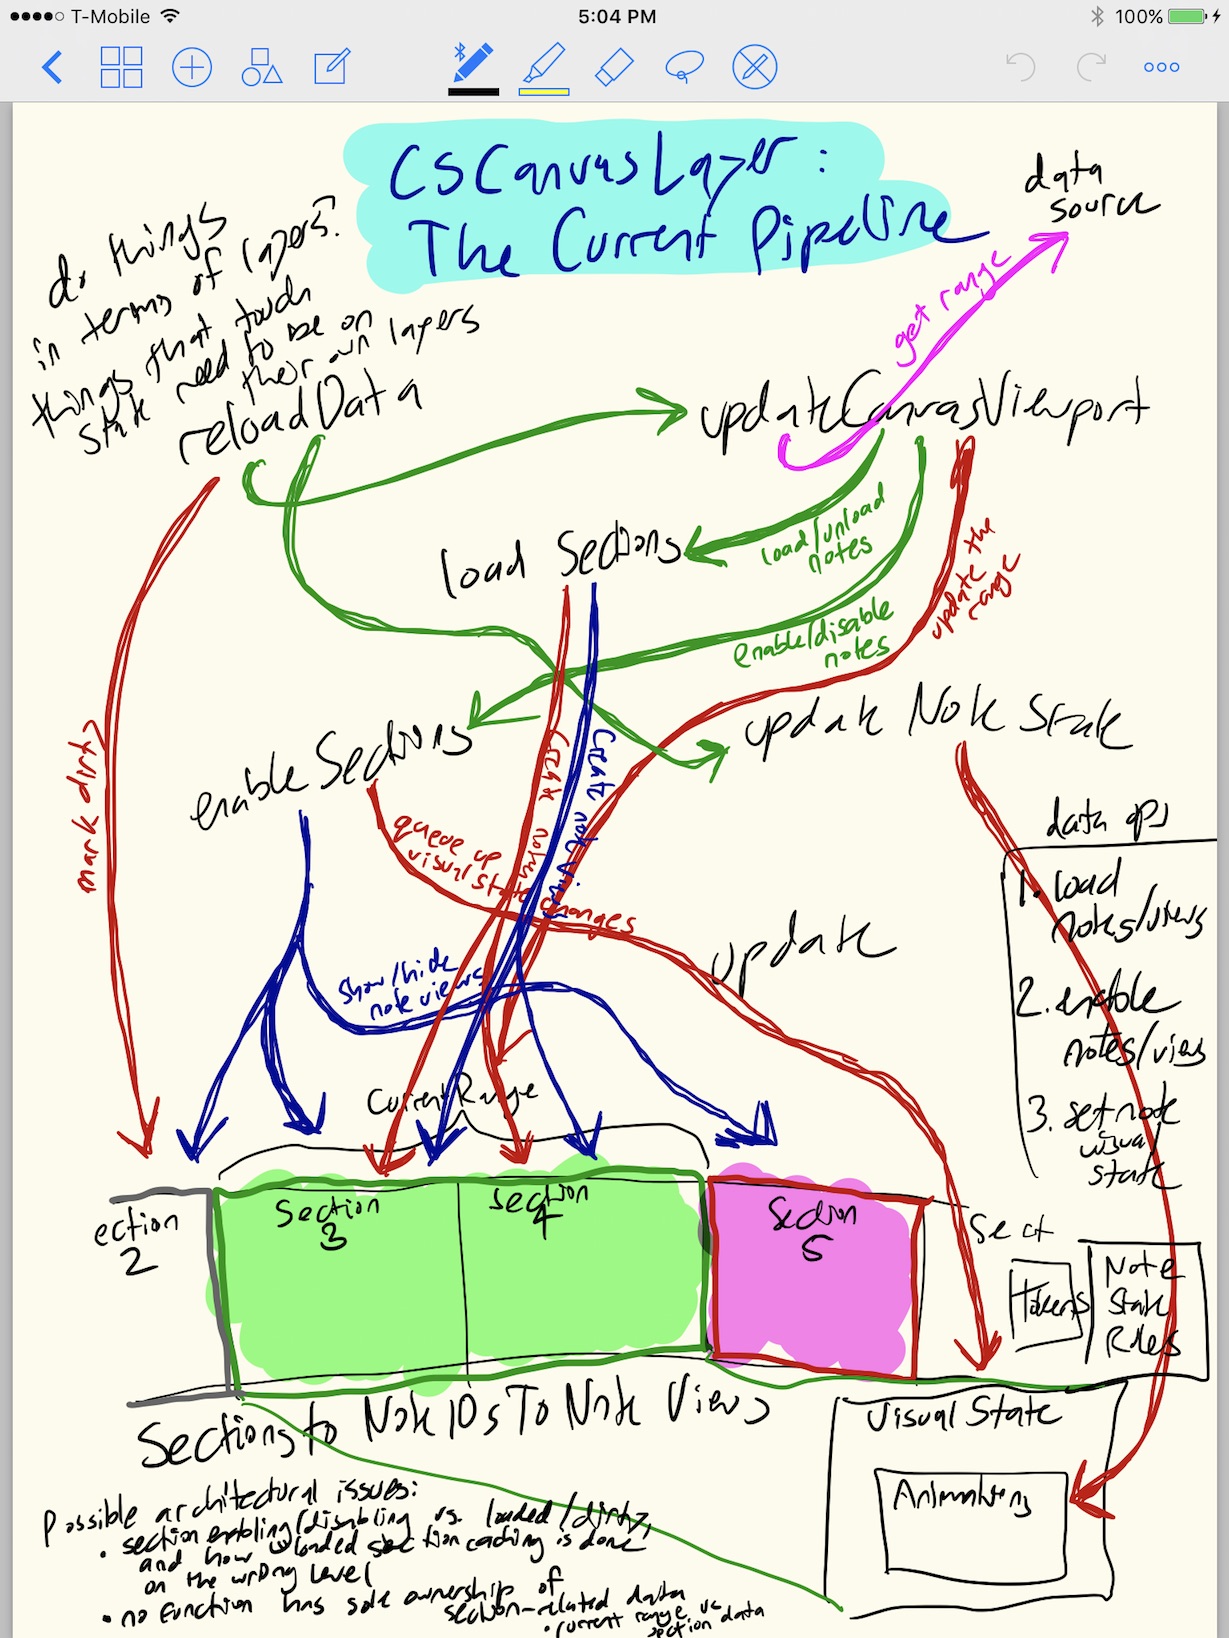 T-Mobile
5:04 PM
100%
CSCanvasLayer:
The Current Pipeline
data
source
do things
in terms of layers?
things that touch
state need to be on
their own layers
get range
reloadData
updateCanvasViewport
load Sections
load/unload
notes
update the
range
enable/disable
notes
update Note State
enable Sections
mark dirty
create note views
queue up
visual state changes
data ops
1. load
notes/views
2. enable
notes/view
3. set note
visual
state
update
show/hide
note views
Current Range
ection
2
Section
3
section
4
Section
5
Sect
Tokens
Note
State
Rules
Sections to Note IDs To Note Views
Visual State
Animations
Possible architectural issues:
• section enabling/disabling vs. loaded/dirty,
and how loaded section caching is done
on the wrong level
• no function has sole ownership of
section-related data
• current range vs
section data